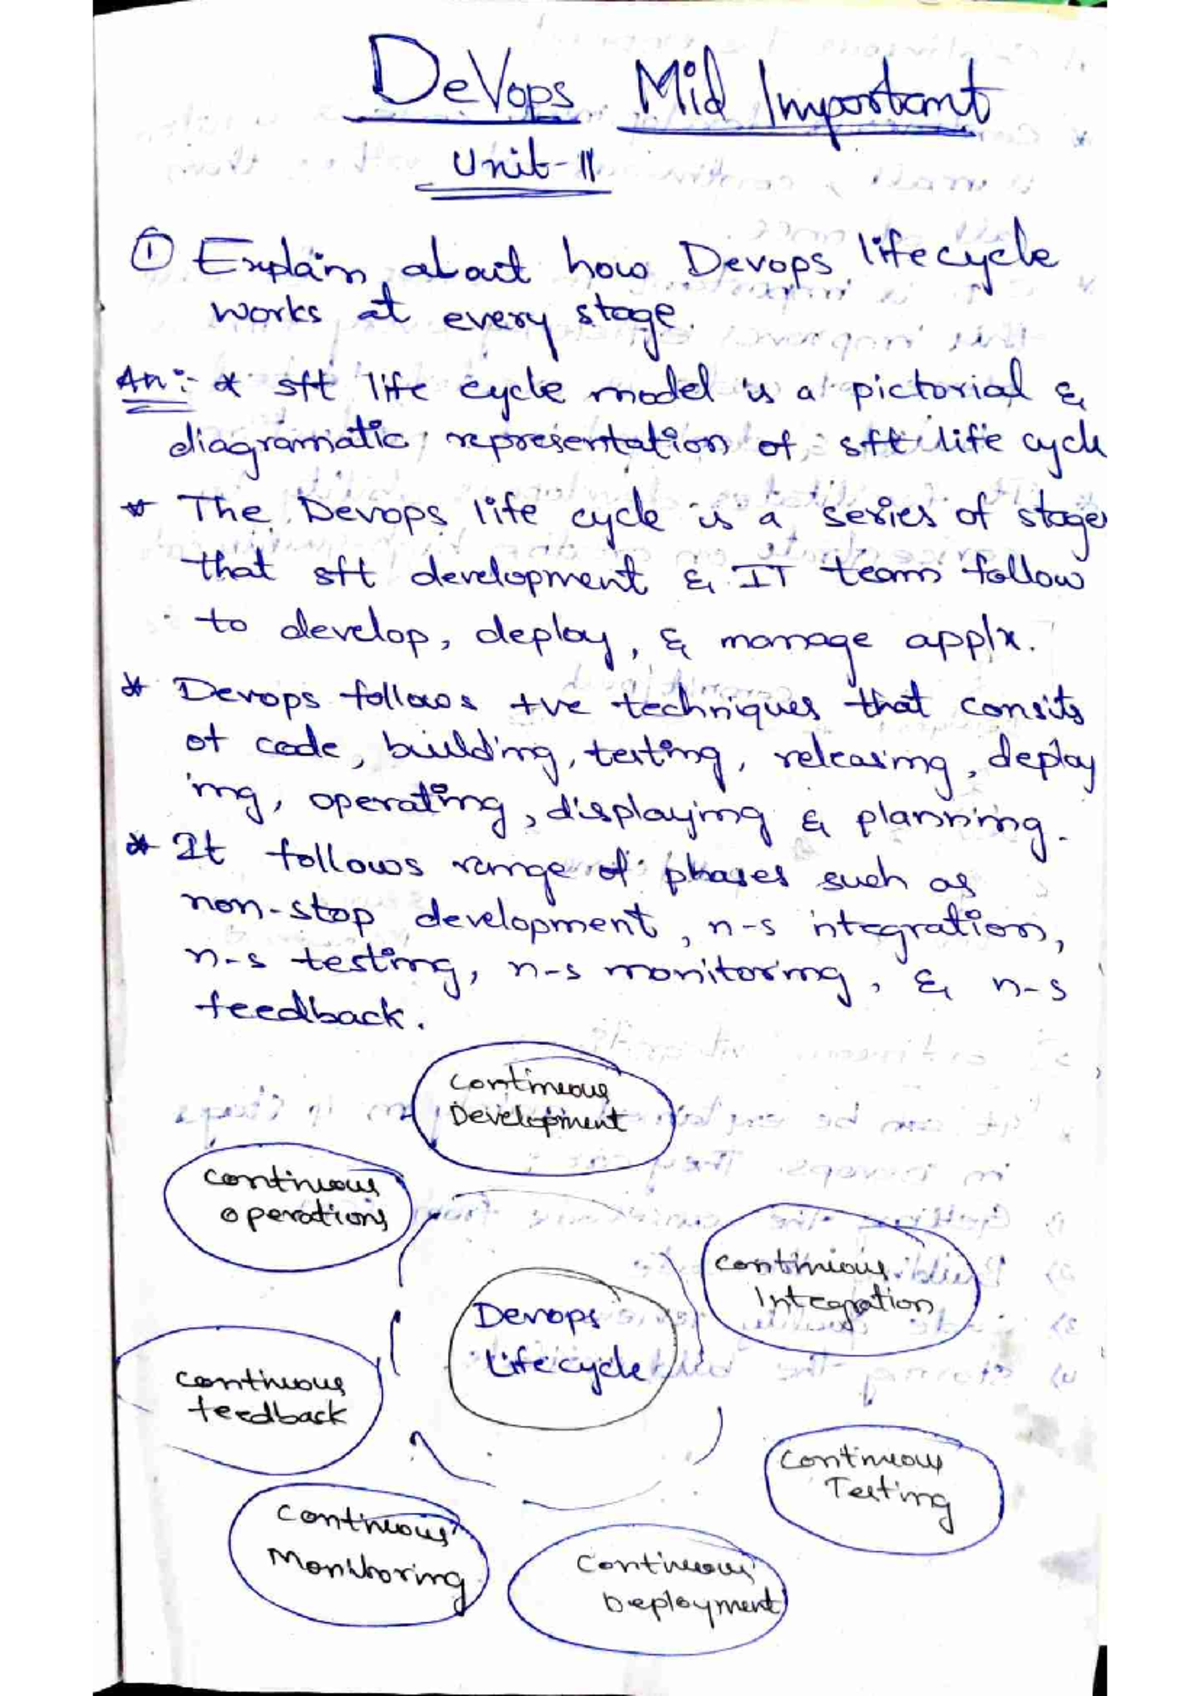 DeVops Mid Important
Unit-II
① Explain about how Devops lifecycle
works at every stage.
An:- * sft life cycle model is a pictorial &
diagramatic representation of sft life cycle
* The Devops life cycle is a series of stages
that sft development & IT team follow
to develop, deploy, & manage applx.
* Devops follows +ve techniques that consits
of code, building, testing, releasing, deploy
ing, operating, displaying & planning.
* It follows range of phases such as
non-stop development, n-s integration,
n-s testing, n-s monitoring, & n-s
feedback.
Contineous
Development
Continuous
operations
Continious
Integration
Devops
Lifecycle
Continuous
feedback
Continuous
Testing
Continuous
Monitoring
Continuous
Deployment